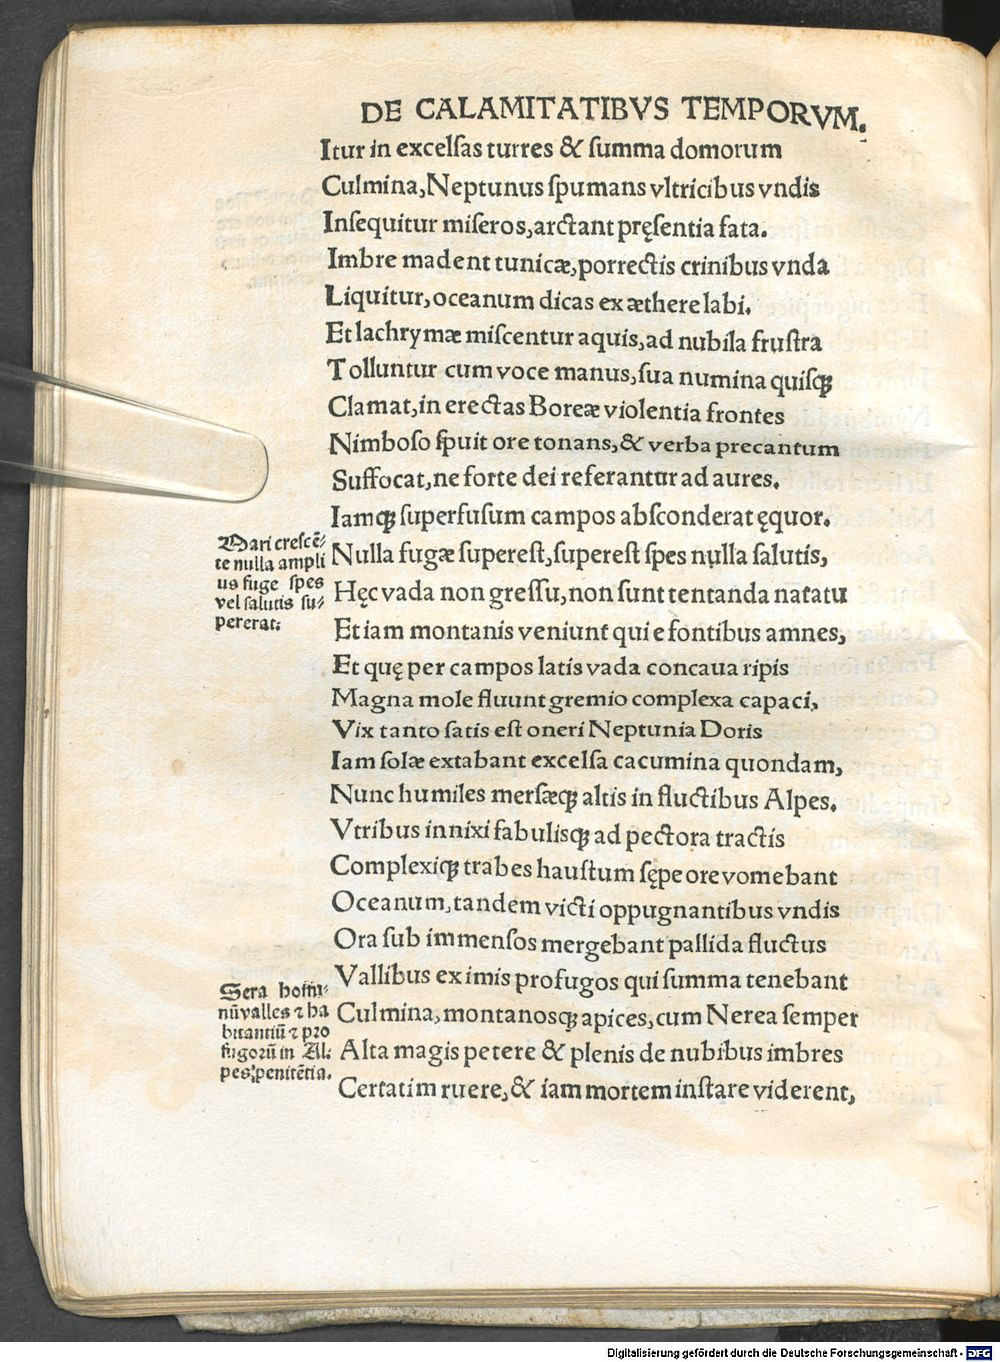 DE CALAMITATIBVS TEMPORVM.
Itur in excelſas turres & ſumma domorum
Culmina, Neptunus ſpumans vltricibus vndis
Inſequitur miſeros, arctant pręſentia fata.
Imbre madent tunicæ, porrectis crinibus vnda
Liquitur, oceanum dicas ex æthere labi.
Et lachrymæ miſcentur aquis, ad nubila fruſtra
Tolluntur cum voce manus, ſua numina quiſqꝫ
Clamat, in erectas Boreæ violentia frontes
Nimboſo ſpuit ore tonans, & verba precantum
Suffocat, ne forte dei referantur ad aures.
Iamqꝫ ſuperfuſum campos abſconderat ęquor.
Nulla fugæ ſupereſt, ſupereſt ſpes nulla ſalutis,
Hęc vada non greſſu, non ſunt tentanda natatu
Etiam montanis veniunt qui e fontibus amnes,
Et quę per campos latis vada concaua ripis
Magna mole fluunt gremio complexa capaci,
Vix tanto ſatis eſt oneri Neptunia Doris
Iam ſolæ extabant excelſa cacumina quondam,
Nunc humiles merſæqꝫ altis in fluctibus Alpes.
Vtribus innixi fabuliſqꝫ ad pectora tractis
Complexiqꝫ trabes hauſtum ſępe ore vomebant
Oceanum, tandem victi oppugnantibus vndis
Ora ſub immenſos mergebant pallida fluctus
Vallibus ex imis profugos qui ſumma tenebant
Culmina, montanoſqꝫ apices, cum Nerea ſemper
Alta magis petere & plenis de nubibus imbres
Certatim ruere, & iam mortem inſtare viderent,
Mari creſcē⸗
te nulla ampli
us fuge ſpes
vel ſalutis ſu⸗
pererat.
Sera homi⸗
nū valles ⁊ ha
bitantiū ⁊ pro
fugorū in Al⸗
pes penitētia.
Digitalisierung gefördert durch die Deutsche Forschungsgemeinschaft - DFG